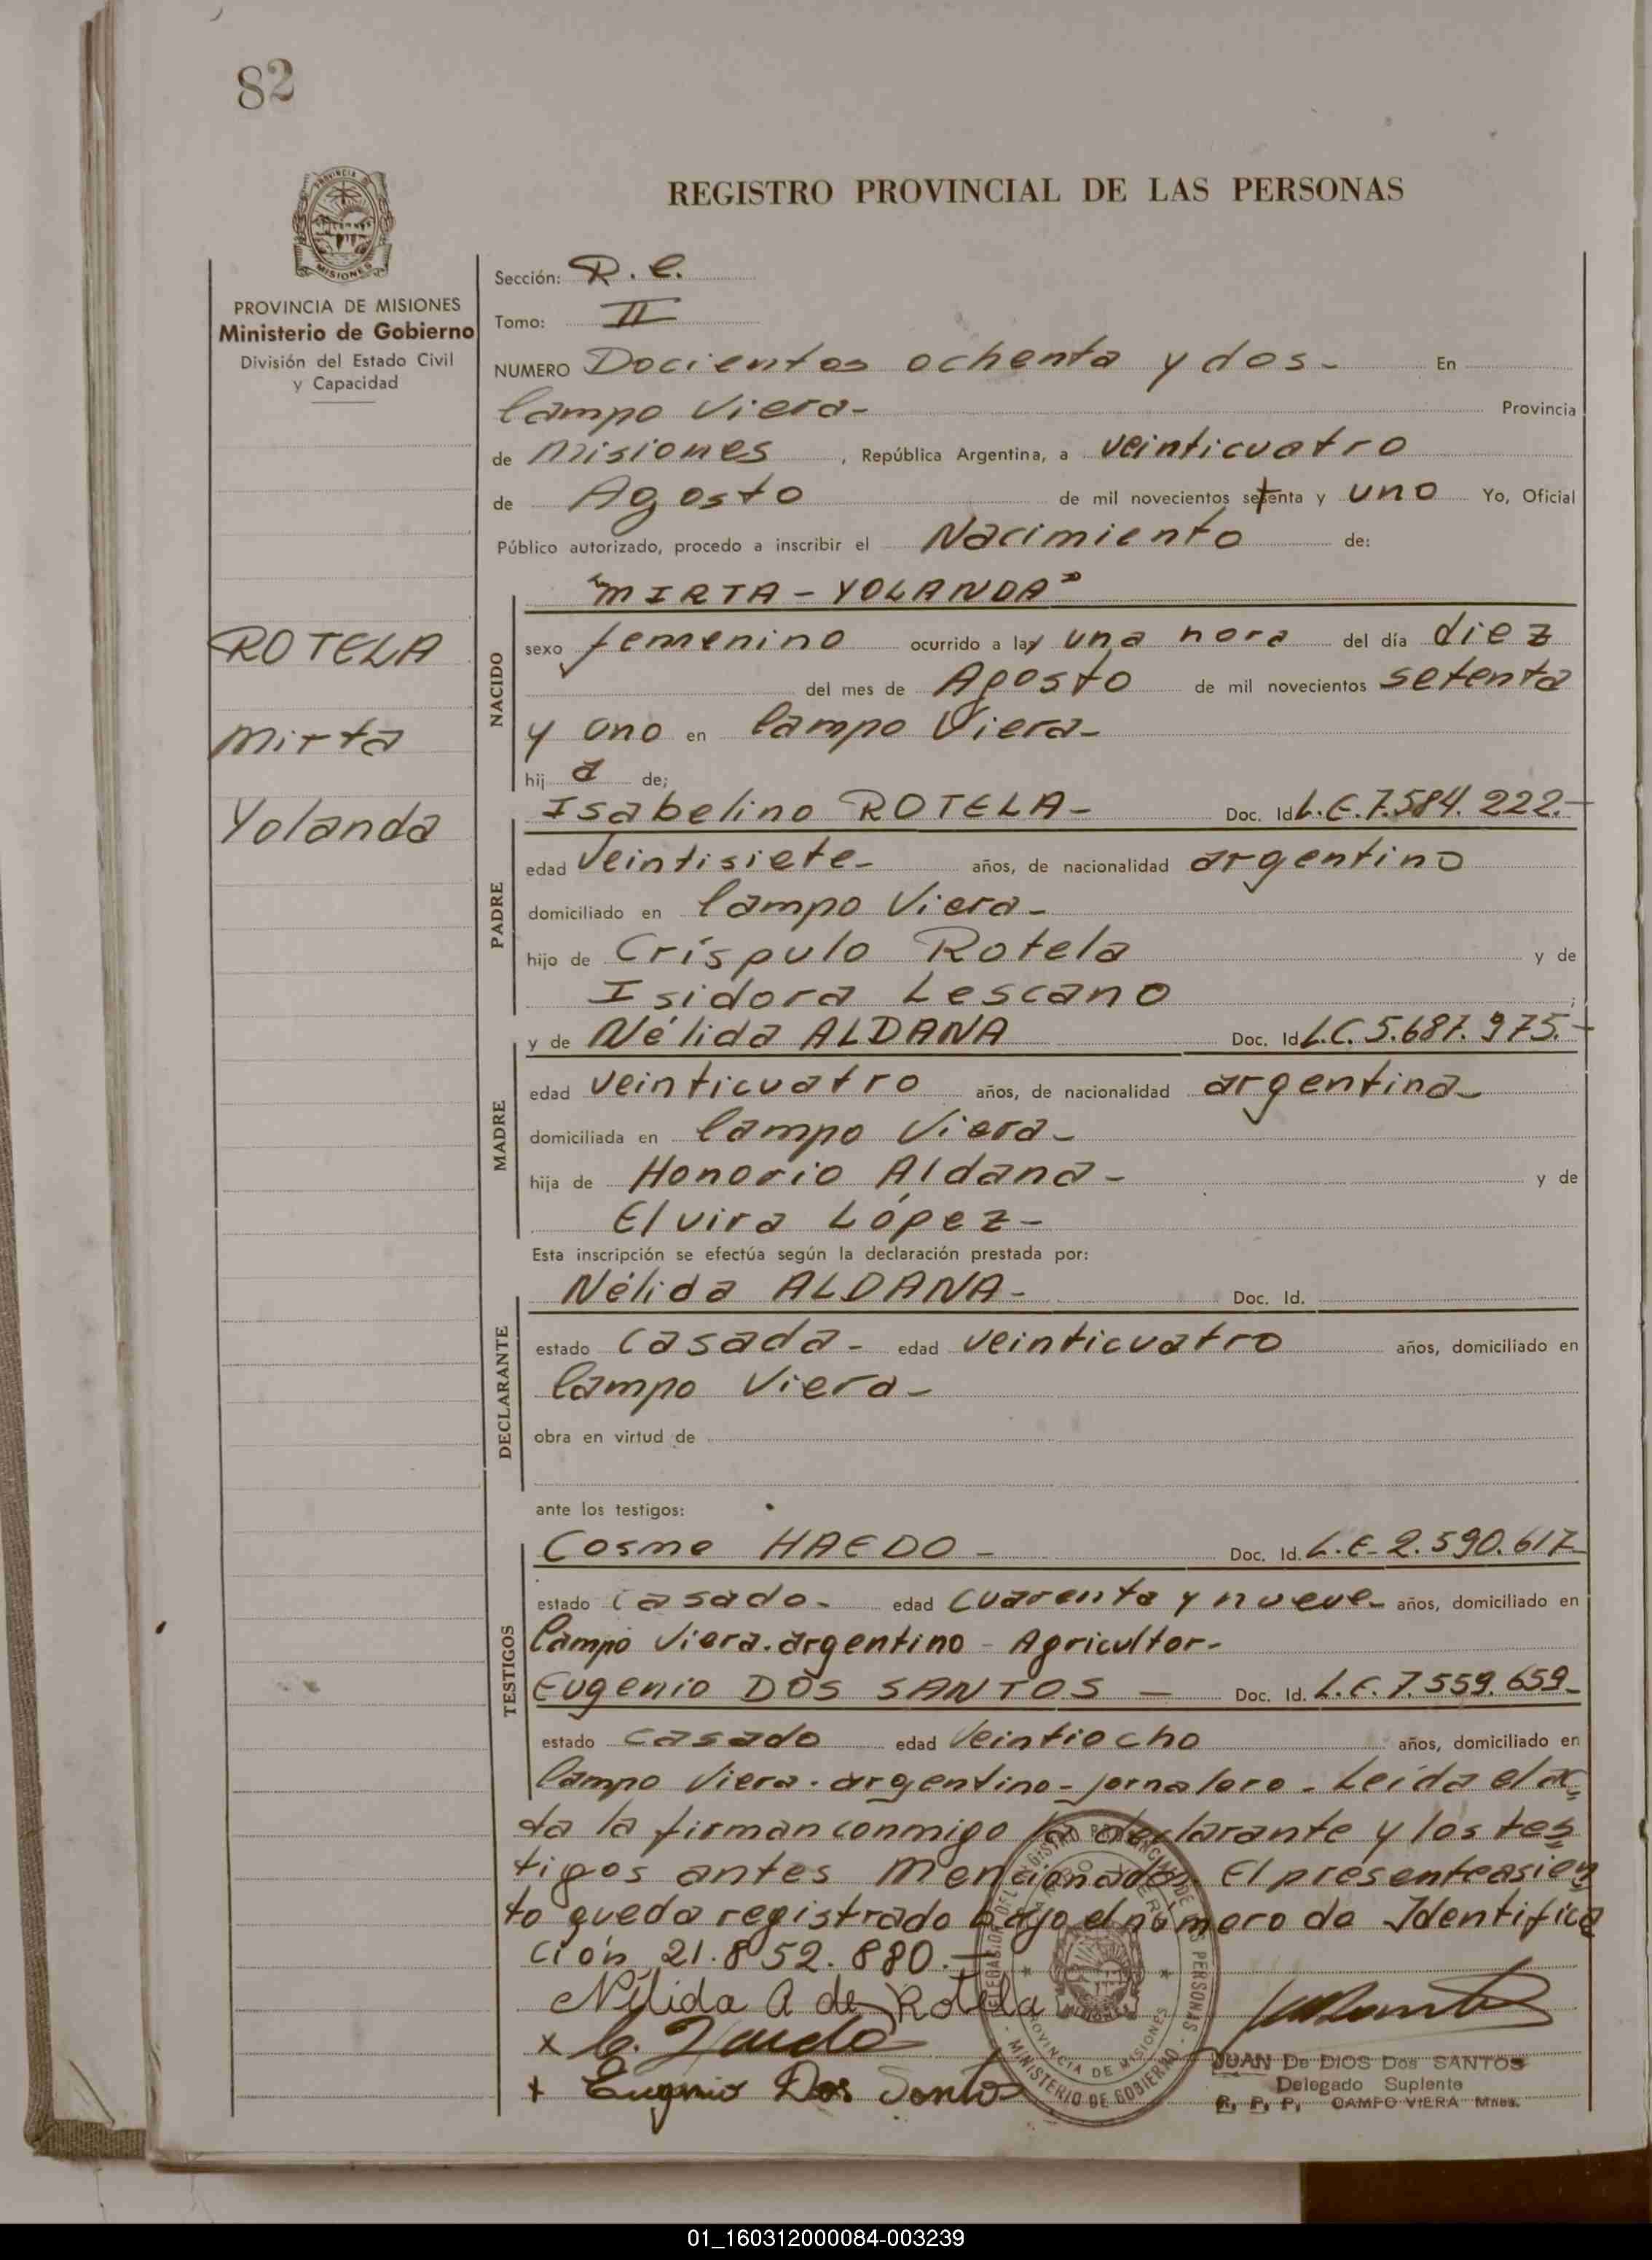 82
REGISTRO PROVINCIAL DE LAS PERSONAS
PROVINCIA DE MISIONES
Ministerio de Gobierno
División del Estado Civil
y Capacidad
ROTELA
Mirta
Yolanda
Sección: R.C.
Tomo: II
NUMERO Docientos ochenta y dos- En
Campo Viera- Provincia
de Misiones , República Argentina, a veinticuatro
de Agosto de mil novecientos setenta y uno Yo, Oficial
Público autorizado, procedo a inscribir el Nacimiento de:
"MIRTA-YOLANDA"
NACIDO
sexo femenino ocurrido a la una hora del día diez
del mes de Agosto de mil novecientos setenta
y uno en Campo Viera-
hij a de;
PADRE
Isabelino ROTELA- Doc. Id L.E.7.584.222.-
edad veintisiete- años, de nacionalidad argentino
domiciliado en Campo Viera-
hijo de Críspulo Rotela y de
Isidora Lescano ;
MADRE
y de Nélida ALDANA Doc. Id L.C.5.687.975.-
edad veinticuatro años, de nacionalidad argentina-
domiciliada en Campo Viera-
hija de Honorio Aldana- y de
Elvira López-
Esta inscripción se efectúa según la declaración prestada por:
DECLARANTE
Nélida ALDANA- Doc. Id.
estado casada- edad veinticuatro años, domiciliado en
Campo Viera-
obra en virtud de
ante los testigos:
TESTIGOS
Cosme HAEDO- Doc. Id. L.E-2.590.617
estado casado- edad cuarenta y nueve- años, domiciliado en
Campo Viera.argentino-Agricultor-
Eugenio DOS SANTOS — Doc. Id. L.E.7.559.659-
estado casado edad veintiocho años, domiciliado en
Campo Viera.argentino-jornalero-Leída el ac=
ta la firman conmigo la declarante y los tes
tigos antes mencionados. El presente asien
to queda registrado bajo el número de Identifica
ción 21.852.880.-
Nélida A de Rotela
x C. Haedo
+ Eugenio Dos Santos
DELEGACION DEL REGISTRO PROVINCIAL DE LAS PERSONAS
CAMPO VIERA
PROVINCIA DE MISIONES
MINISTERIO DE GOBIERNO
JUAN De DIOS Dos SANTOS
Delegado Suplente
R. P. P. CAMPO VIERA Mnes.
01_160312000084-003239